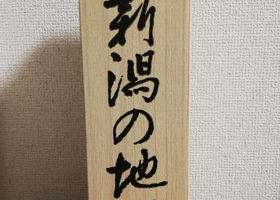 新潟の地